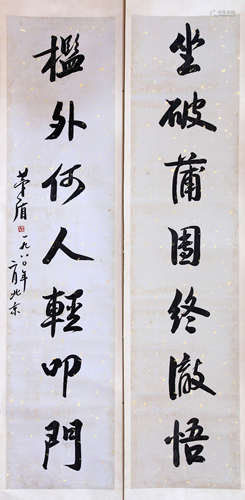 坐破蒲團終徹悟
檻外何人輕叩門
茅盾
一九八〇年
二月北京